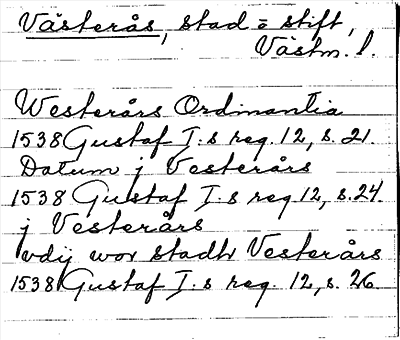 Västerås, stad o stift,
Västm. l.
Westerårs Ordinantia
1538 Gustaf I.s reg. 12, s. 21.
Datum j Vesterårs
1538 Gustaf I.s reg. 12, s. 24.
j Vesterårs
vdij wor stadh Vesterårs
1538 Gustaf I.s reg. 12, s. 26